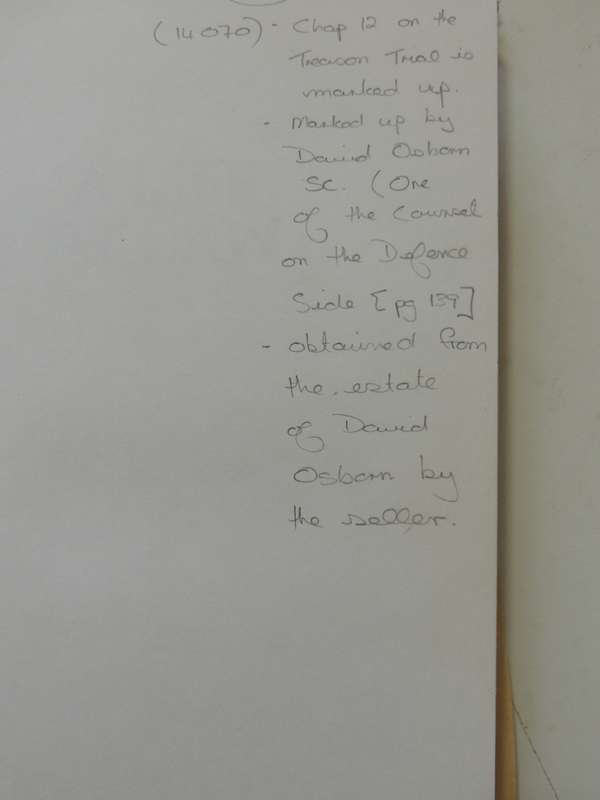 (14070) - Chap 12 on the
Treason Trial is
marked up.
- Marked up by
David Osborn
SC. (One
of the Counsel
on the Defence
Side [pg 139]
- obtained from
the estate
of David
Osborn by
the seller.